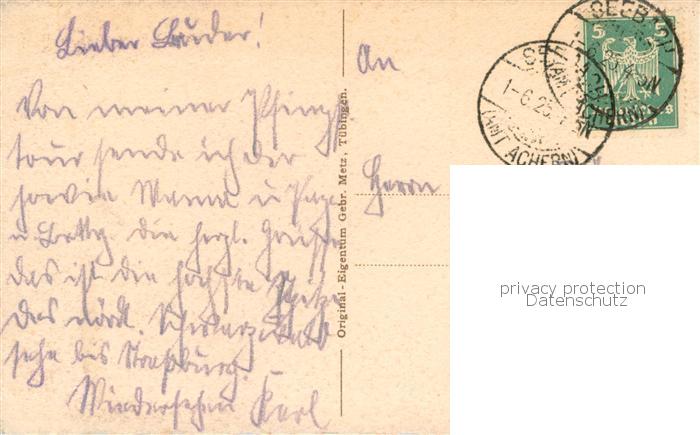 Lieber Bruder!
Von meiner Pfingst
tour sende ich der
sowie Mama u. Papa
u. Betty die herzl. Grüsse
das ist die höchste Spitze
des nördl. Schwarzwald
sehe bis Straßburg.
Wiedersehen Karl
Original-Eigentum Gebr. Metz, Tübingen.
An
Herrn
5 5
SEEBACH
1-6.25
(AMT ACHERN)
SEEBACH
(AMT ACHERN)
privacy protection
Datenschutz